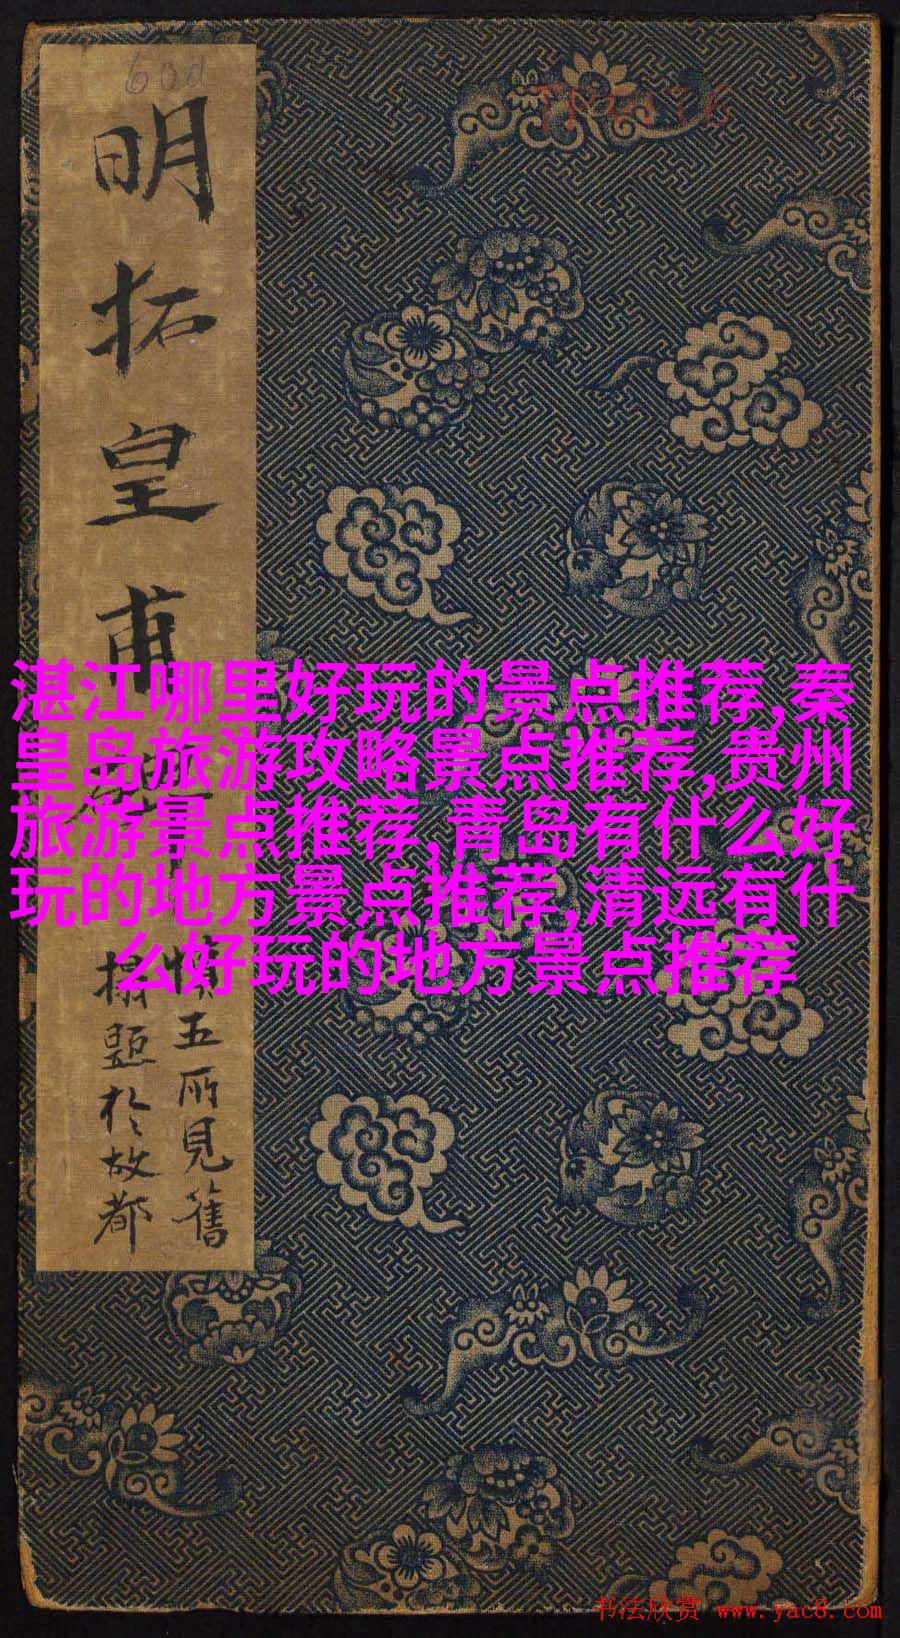 600
明拓皇甫
湛江哪里好玩的景点推荐,秦
皇岛旅游攻略景点推荐,贵州
旅游景点推荐,青岛有什么好
玩的地方景点推荐,清远有什
么好玩的地方景点推荐
五所見舊
搨題於故都
书法欣赏 www.yac8.com